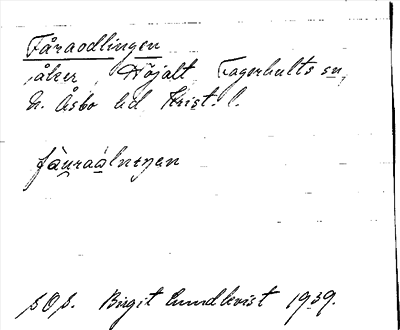 Fåraodlingen
åker, Höjalt, Fagerhults sn,
N. Åsbo hd Krist. l.
fåuraàlnıŋen
SOS. Birgit Lundkvist 1939.